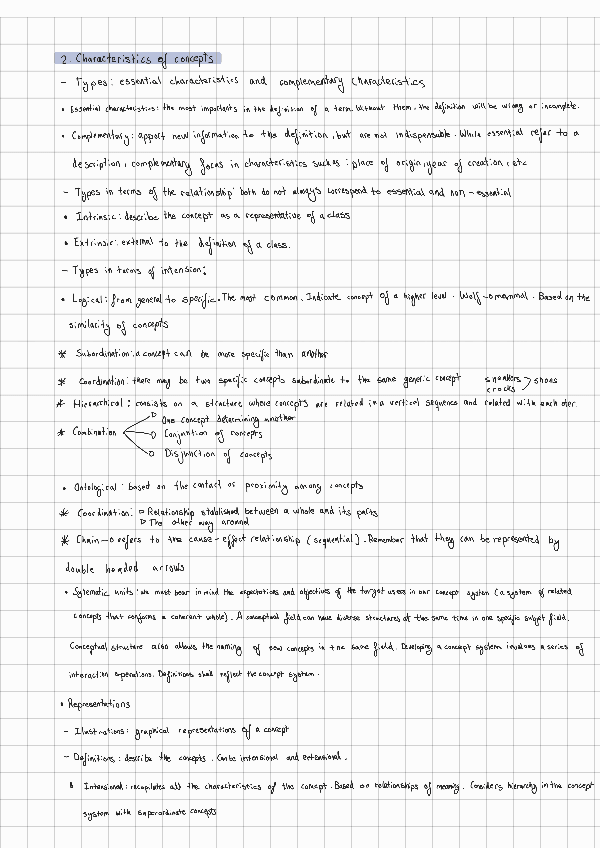 2. Characteristics of concepts
- Types: essential characteristics and complementary characteristics
• Essential characteristics: the most importants in the definition of a term. Without them, the definition will be wrong or incomplete.
• Complementary: apport new information to the definition, but are not indispensable. While essential refer to a
description, complementary focus in characteristics such as: place of origin, year of creation, etc
- Types in terms of the relationship: both do not always correspond to essential and non-essential
• Intrinsic: describe the concept as a representative of a class
• Extrinsic: external to the definition of a class.
- Types in terms of intension:
• Logical: from general to specific. The most common. Indicate concept of a higher level. Wolf → mammal. Based on the
similarity of concepts
* Subordination: a concept can be more specific than another
* Coordination: there may be two specific concepts subordinate to the same generic concept sneakers > shoes
crocks
* Hierarchical: consists on a structure where concepts are related in a vertical sequence and related with each oter.
▷ One concept determining another
* Combination ▷ Conjuntion of concepts
▷ Disjunction of concepts
• Ontological: based on the contact or proximity among concepts
* Coordination: ▷ Relationship stablished between a whole and its parts
▷ The other way around
* Chain → refers to the cause-effect relationship (sequential). Remember that they can be represented by
double headed arrows
• Systematic units: we must bear in mind the expectations and objectives of the target users in our concept system (a system of related
concepts that conforms a coherent whole). A conceptual field can have diverse structures at the same time in one specific subject field.
Conceptual structure also allows the naming of new concepts in the same field. Developing a concept system involves a series of
interaction operations. Definitions shall reflect the concept system.
• Representations
- Illustrations: graphical representations of a concept
- Definitions: describe the concepts. Can be intensional and extensional.
• Intensional: recapitulates all the characteristics of the concept. Based on relationships of meaning. Considers hierarchy in the concept
system with superordinate concepts